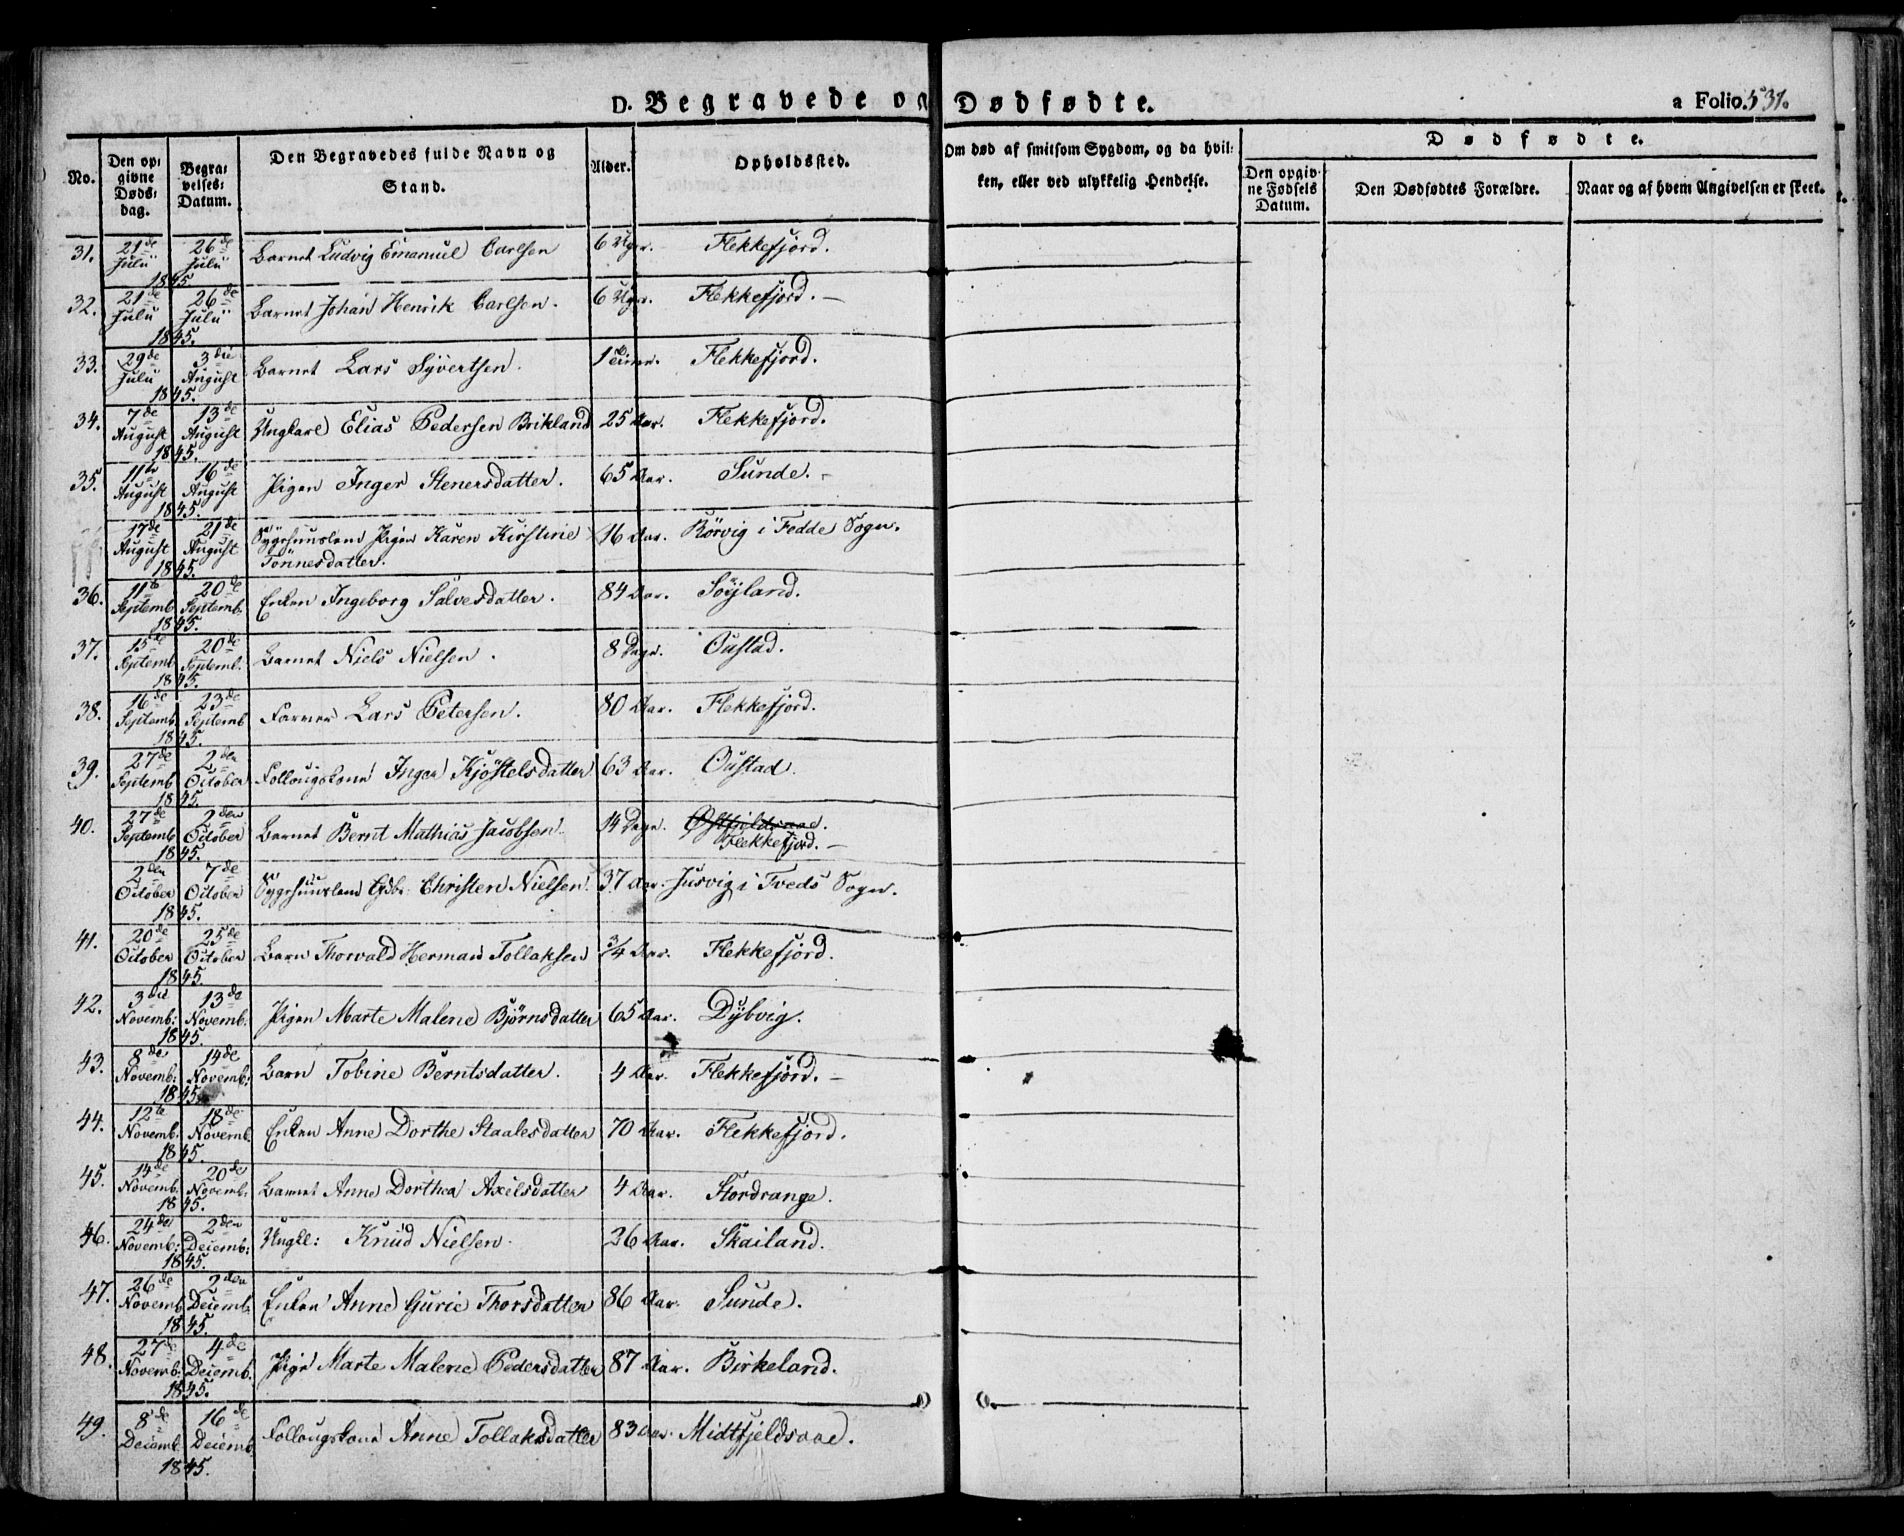 D. Begravede og Dødfødte.
a Folio 531.
No.
Den op: givne Døds: dag.
Begra: velses: Datum.
Den Begravedes fulde Navn og Stand.
Alder.
Opholdssted.
Om død af smitsom Sygdom, og da hvil: ken, eller ved ulykkelig Hendelse.
Dødfødte.
Den opgiv: ne Fødsels Datum.
Den Dødfødtes Forældre.
Naar og af hvem Angivelsen er skeet.
31. 21de Julii 26de Julii 1845 Barnet Ludvig Emanuel Carlsen 6 Uger. Flekkefjord.
32. 21de Julii 26de Julii 1845. Barnet Johan Henrik Carlsen. 6 Uger. Flekkefjord. –
33. 29de Julii 3die August 1845. Barnet Lars Syvertsen. 1 Flekkefjord.
34. 7de August 13de August 1845. Ungkarl Elias Pedersen Brikland 25 Aar. Flekkefjord.
35. 11te August 16de August 1845. Pigen Inger Stenersdatter. 65 Aar. Sunde. –
17de August 21de August 1845. Pigen Karen Kirstine Tönnesdatter. 16 Aar. Rörvig i Fedde Sogn.
36. 11te Septemb 20de Septemb. 1845. Enken Ingeborg Salvesdatter. 84 Aar. Söyland.
37. 15de Septemb 20de Septemb. 1845. Barnet Niels Nielsen. 8 Dage. Oustad.
38. 16de Septemb. 23de Septemb 1845. Farver Lars Petersen. 80 Aar. Flekkefjord.
39. 27de Septemb 2den October 1845. Follougskone Inger Kjöstelsdatter 63 Aar. Oustad.
40. 27de Septemb 2den October 1845. Barnet Bernt Mathias Jacobsen. 14 Dage. Østfjeldsaae. Flekkefjord. –
2den October 7de October 1845. Christen Nielsen. 37 Aar. Jusvig i Tveds Sogn.
41. 20de October 25de October 1845. Barn Thorvald Herman Tollaksen 3/4 Aar. Flekkefjord.
42. 3die Novemb: 13de Novemb. 1845. Pigen Marte Malene Bjørnsdatter 65 Aar. Dybvig.
43. 8de Novemb: 14de Novemb: 1845. Barn Tobine Berntsdatter. 4 Aar. Flekkefjord. –
44. 12te Novemb. 18de Novemb. 1845. Enken Anne Dorthe Staalesdatter 70 Aar. Flekkefjord.
45. 14de Novemb. 20de Novemb. 1845. Barnet Anne Dorthea Axelsdatter 4 Aar. Stordrange.
46. 24de Novemb: 2den Decemb: 1845. Ungk: Knud Nielsen. 26 Aar. Skailand.
47. 26de Novemb 2den Decemb. 1845. Enken Anne Gurie Thorsdatter 86 Aar. Sunde.
48. 27de Novemb. 4de Decemb. 1845. Pige Marte Malene Pedersdatter 87 Aar. Birkeland.
49. 8de Decemb 16de Decemb 1845. Follougskone Anne Tollaksdatter 83 Aar. Midtfjeldsaae.